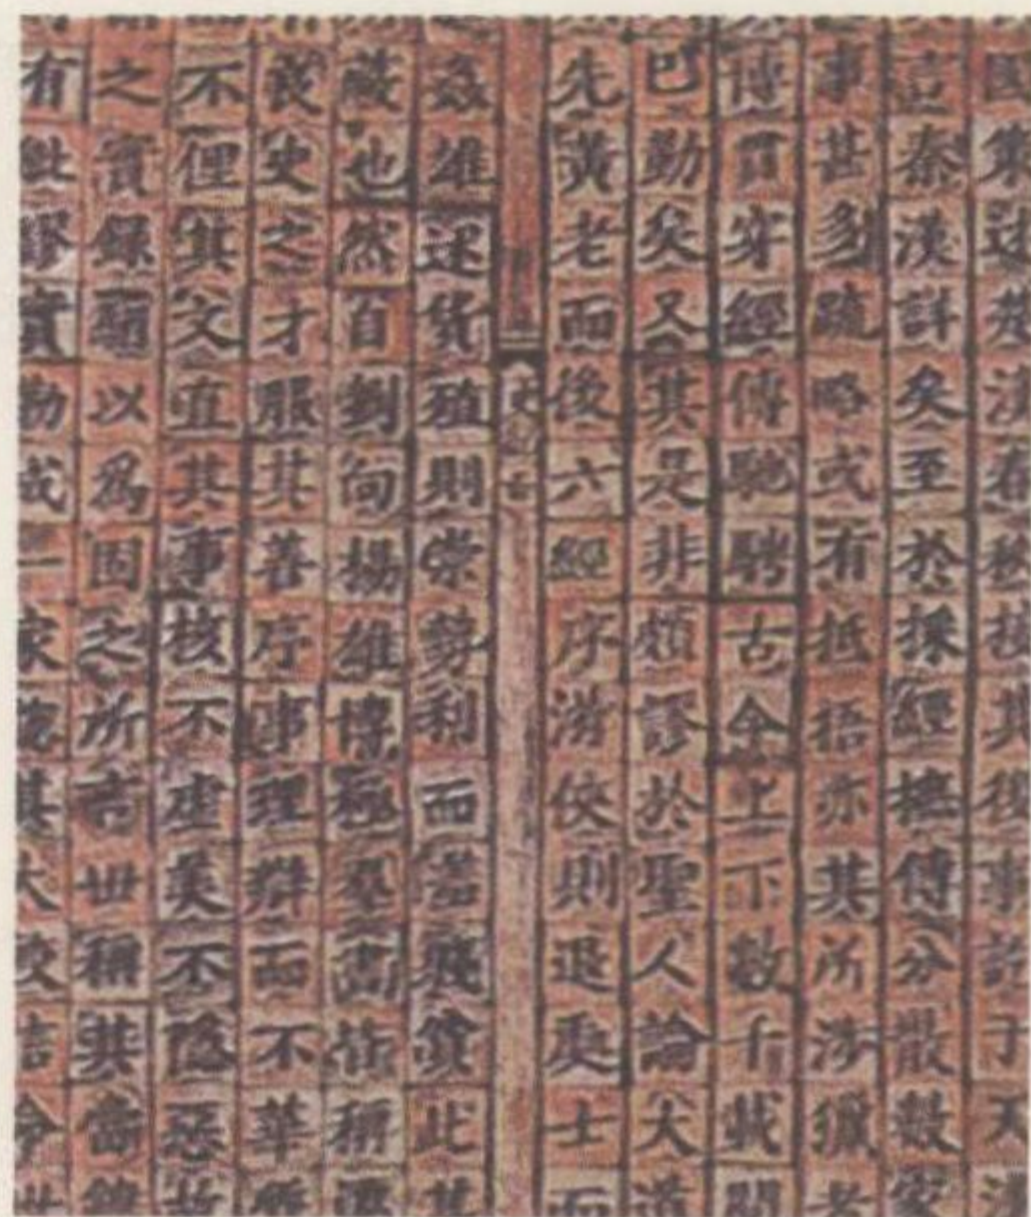 國策述楚漢春秋接其後事訖于天漢
言秦漢詳矣至於採經摭傳分散數家
事甚多疏略或有抵捂亦其所涉獵者
博貫穿經傳馳騁古今上下數千載間
巳勤矣又其是非頗謬於聖人論大道
先黃老而後六經序游俠則退處士而
姦雄述貨殖則崇勢利而羞賤貧此其
蔽也然自劉向揚雄博極羣書皆稱遷
良史之才服其善序事理辯而不華質
不俚其文直其事核不虛美不隱惡故
之實錄駰以爲固之所言世稱其當雖
有紕繆實勒成一家總其大較信命世